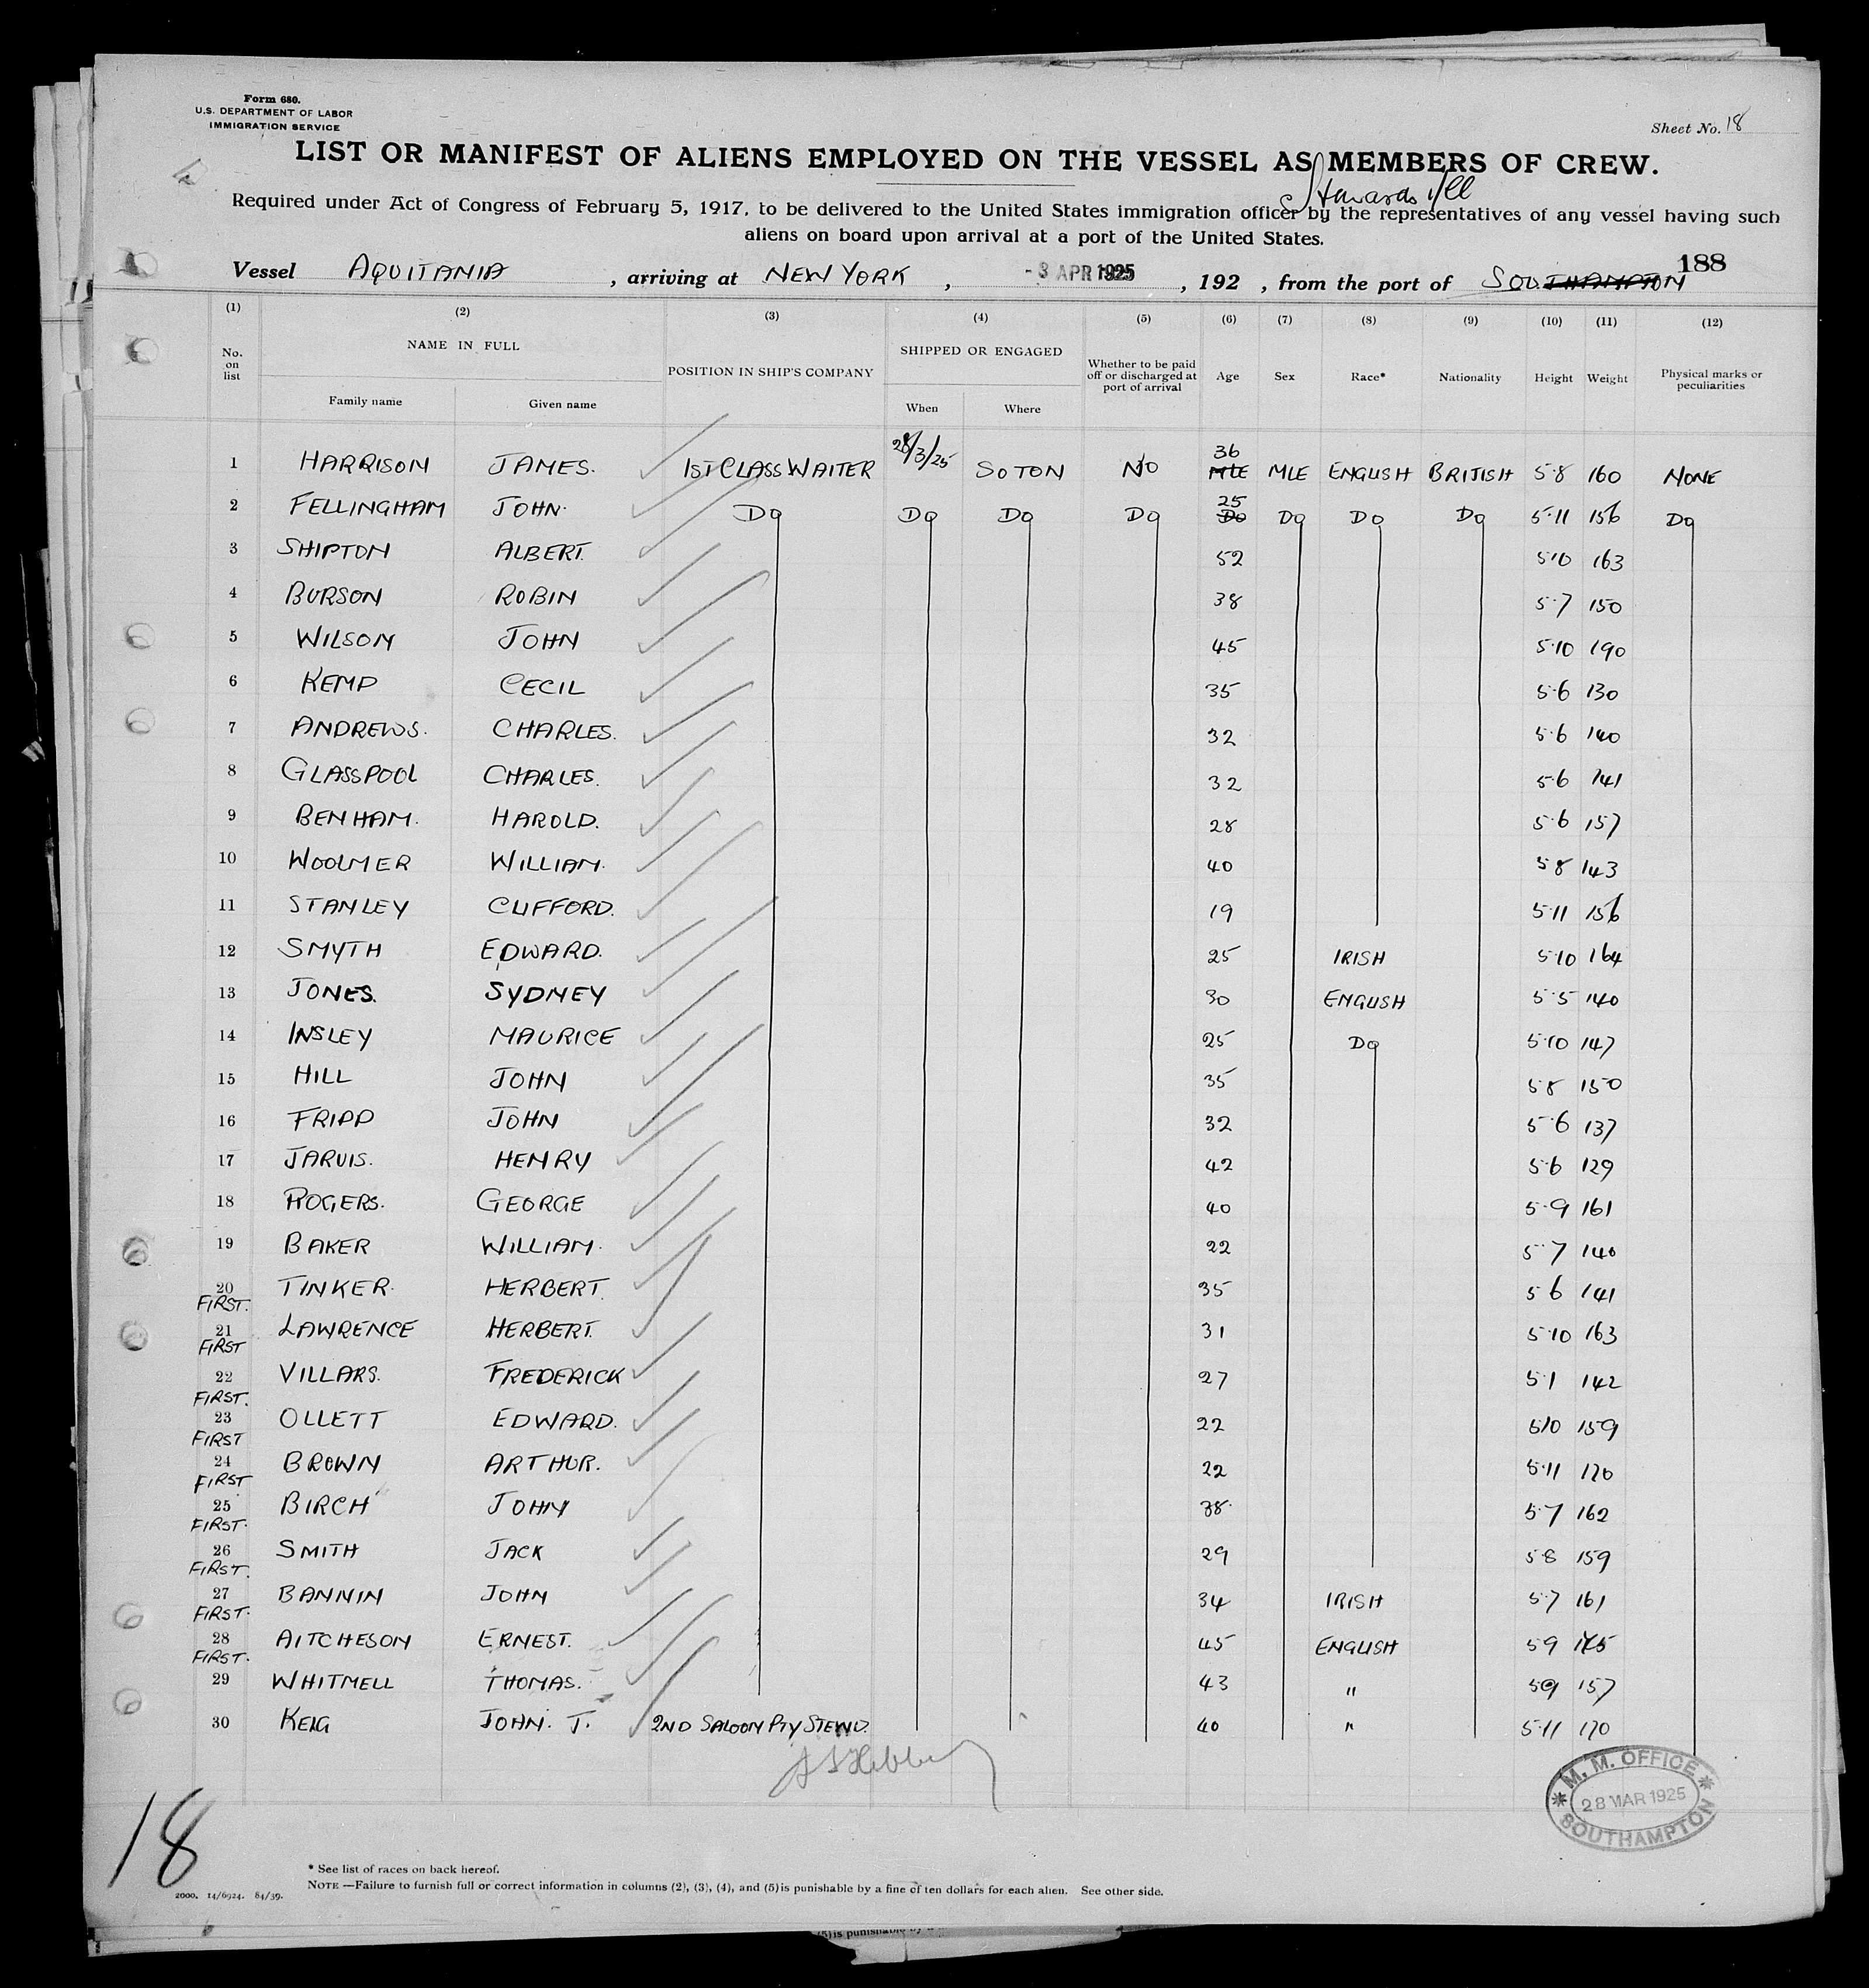 Form 680.
U.S. DEPARTMENT OF LABOR
IMMIGRATION SERVICE
Sheet No. 18
LIST OR MANIFEST OF ALIENS EMPLOYED ON THE VESSEL AS MEMBERS OF CREW.
Required under Act of Congress of February 5, 1917, to be delivered to the United States immigration officer by the representatives of any vessel having such
aliens on board upon arrival at a port of the United States.
188
Vessel AQUITANIA , arriving at NEW YORK , -3 APR 1925 , 192 , from the port of SOUTHAMPTON
(1) (2) (3) (4) (5) (6) (7) (8) (9) (10) (11) (12)
No. on list NAME IN FULL POSITION IN SHIP'S COMPANY SHIPPED OR ENGAGED Whether to be paid off or discharged at port of arrival Age Sex Race* Nationality Height Weight Physical marks or peculiarities
Family name Given name When Where
1 HARRISON JAMES. 1ST CLASS WAITER 28/3/25 SOTON NO 36 MLE MLE ENGLISH BRITISH 5·8 160 NONE
2 FELLINGHAM JOHN. Do Do Do Do 25 Do Do Do Do 5·11 156 Do
3 SHIPTON ALBERT. 52 5·10 163
4 BURSON ROBIN 38 5·7 150
5 WILSON JOHN 45 5·10 190
6 KEMP CECIL 35 5·6 130
7 ANDREWS. CHARLES. 32 5·6 140
8 GLASSPOOL CHARLES. 32 5·6 141
9 BENHAM. HAROLD. 28 5·6 157
10 WOOLMER WILLIAM. 40 5·8 143
11 STANLEY CLIFFORD. 19 5·11 156
12 SMYTH EDWARD. 25 IRISH 5·10 164
13 JONES. SYDNEY 30 ENGLISH 5·5 140
14 INSLEY MAURICE 25 Do 5·10 147
15 HILL JOHN 35 5·8 150
16 FRIPP JOHN 32 5·6 137
17 JARVIS. HENRY 42 5·6 129
18 ROGERS. GEORGE 40 5·9 161
19 BAKER WILLIAM. 22 5·7 140
20 TINKER. HERBERT. 35 5·6 141
FIRST.
21 LAWRENCE HERBERT. 31 5·10 163
FIRST
22 VILLARS. FREDERICK 27 5·1 142
FIRST.
23 OLLETT EDWARD. 22 510 159
FIRST
24 BROWN ARTHUR. 22 5·11 170
FIRST
25 BIRCH JOHN 38 5·7 162
FIRST.
26 SMITH JACK 29 5·8 159
FIRST.
27 BANNIN JOHN 34 IRISH 5·7 161
FIRST.
28 AITCHESON ERNEST. 45 ENGLISH 5·9
FIRST.
29 WHITMELL THOMAS. 43 " 5·9 157
30 KEIG JOHN. J. 2ND SALOON PTY STEWD. 40 " 5·11 170
M. M. OFFICE
28 MAR 1925
SOUTHAMPTON
18
* See list of races on back hereof.
NOTE —Failure to furnish full or correct information in columns (2), (3), (4), and (5) is punishable by a fine of ten dollars for each alien. See other side.
2000. 14/6924. 84/39.